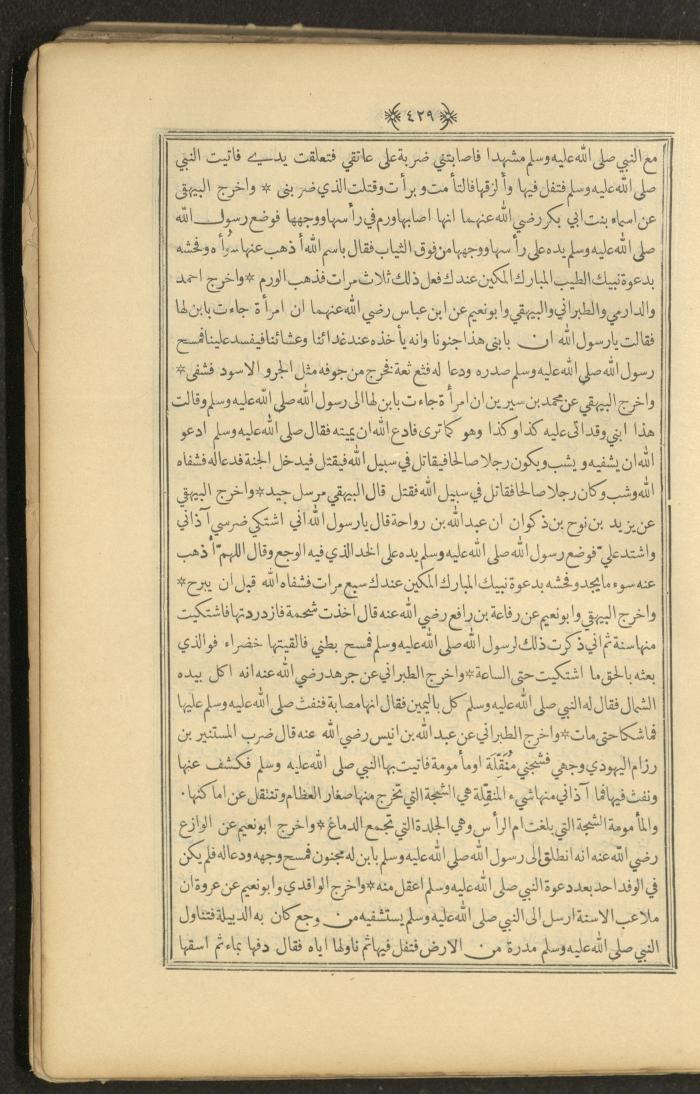 ﴿٤٢٩﴾
مع النبي صلى الله عليه وسلم مشهدا فاصابتني ضربة على عاتقي فتعلقت يدي فاتيت النبي
صلى الله عليه وسلم فتفل فيها وألزقها فالتأمت وبرأت وقتلت الذي ضربني * واخرج البيهقي
عن اسماء بنت ابي بكر رضي الله عنهما انها اصابها ورم في رأسها ووجهها فوضع رسول الله
صلى الله عليه وسلم يده على رأسها ووجهها من فوق الثياب فقال باسم الله أذهب عنها سوأه وفحشه
بدعوة نبيك الطيب المبارك المكين عندك فعل ذلك ثلاث مرات فذهب الورم * واخرج احمد
والدارمي والطبراني والبيهقي وابو نعيم عن ابن عباس رضي الله عنهما ان امرأة جاءت بابن لها
فقالت يارسول الله ان بابني هذا جنونا وانه يأخذه عند غدائنا وعشائنا فيفسد علينا فمسح
رسول الله صلى الله عليه وسلم صدره ودعا له فثع ثعة فخرج من جوفه مثل الجرو الاسود فشفى *
واخرج البيهقي عن محمد بن سيرين ان امرأة جاءت بابن لها الى رسول الله صلى الله عليه وسلم وقالت
هذا ابني وقد اتى عليه كذا وكذا وهو كما ترى فادع الله ان يميته فقال صلى الله عليه وسلم ادعو
الله ان يشفيه ويشب ويكون رجلا صالحا فيقاتل في سبيل الله فيقتل فيدخل الجنة فدعا له فشفاه
الله وشب وكان رجلا صالحا فقاتل في سبيل الله فقتل قال البيهقي مرسل جيد * واخرج البيهقي
عن يزيد بن نوح بن ذكوان ان عبد الله بن رواحة قال يارسول الله اني اشتكي ضرسي آذاني
واشتد عليّ فوضع رسول الله صلى الله عليه وسلم يده على الخد الذي فيه الوجع وقال اللهمّ أذهب
عنه سوء ما يجد وفحشه بدعوة نبيك المبارك المكين عندك سبع مرات فشفاه الله قبل ان يبرح *
واخرج البيهقي وابو نعيم عن رفاعة بن رافع رضي الله عنه قال اخذت شحمة فازدردتها فاشتكيت
منها سنة ثم اني ذكرت ذلك لرسول الله صلى الله عليه وسلم فمسح بطني فالقيتها خضراء فوالذي
بعثه بالحق ما اشتكيت حتى الساعة * واخرج الطبراني عن جرهد رضي الله عنه انه اكل بيده
الشمال فقال له النبي صلى الله عليه وسلم كل باليمين فقال انها مصابة فنفث صلى الله عليه وسلم عليها
فما شكا حتى مات * واخرج الطبراني عن عبد الله بن انيس رضي الله عنه قال ضرب المستنير بن
رزام اليهودي وجهي فشجني مُنَقِّلَة او مأمومة فاتيت بها النبي صلى الله عليه وسلم فكشف عنها
ونفث فيها فما آذاني منها شيء المنقِّلة هي الشجة التي تخرج منها صغار العظام وتنتقل عن اماكنها .
والمأمومة الشجة التي بلغت ام الرأس وهي الجلدة التي تجمع الدماغ * واخرج ابو نعيم عن الوازع
رضي الله عنه انه انطلق الى رسول الله صلى الله عليه وسلم بابن له مجنون فمسح وجهه ودعا له فلم يكن
في الوفد احد بعد دعوة النبي صلى الله عليه وسلم اعقل منه * واخرج الواقدي وابو نعيم عن عروة ان
ملاعب الاسنة ارسل الى النبي صلى الله عليه وسلم يستشفيه من وجع كان به الدبيلة فتناول
النبي صلى الله عليه وسلم مدرة من الارض فتفل فيها ثم ناولها اياه فقال دفها بماء ثم اسقها